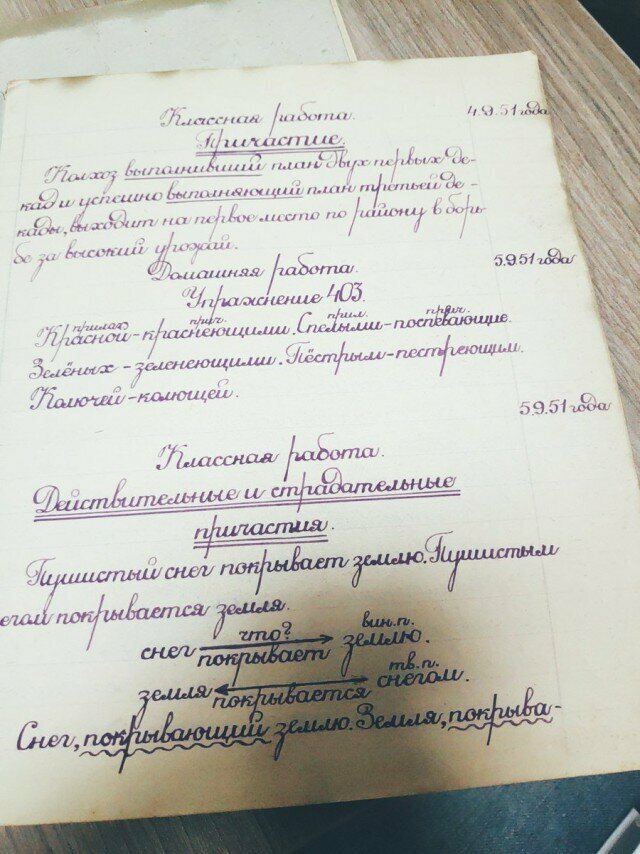 Классная работа. 4.9.51 года
Причастие.
Колхоз выполнивший план двух первых де-
кад и успешно выполняющий план третьей де-
кады, выходит на первое место по району в борь-
бе за высокий урожай.
Домашняя работа. 5.9.51 года
Упражнение 403.
прилаг. прич. прил. прич.
Красной - краснеющими. Спелыми - поспевающие.
Зелёных - зеленеющими. Пёстрым - пестреющим.
Колючей - колющей.
5.9.51 года
Классная работа.
Действительные и страдательные
причастия.
Пушистый снег покрывает землю. Пушистым
снегом покрывается земля.
что? вин.п.
снег покрывает землю.
тв.п.
земля покрывается снегом.
Снег, покрывающий землю. Земля, покрыва-